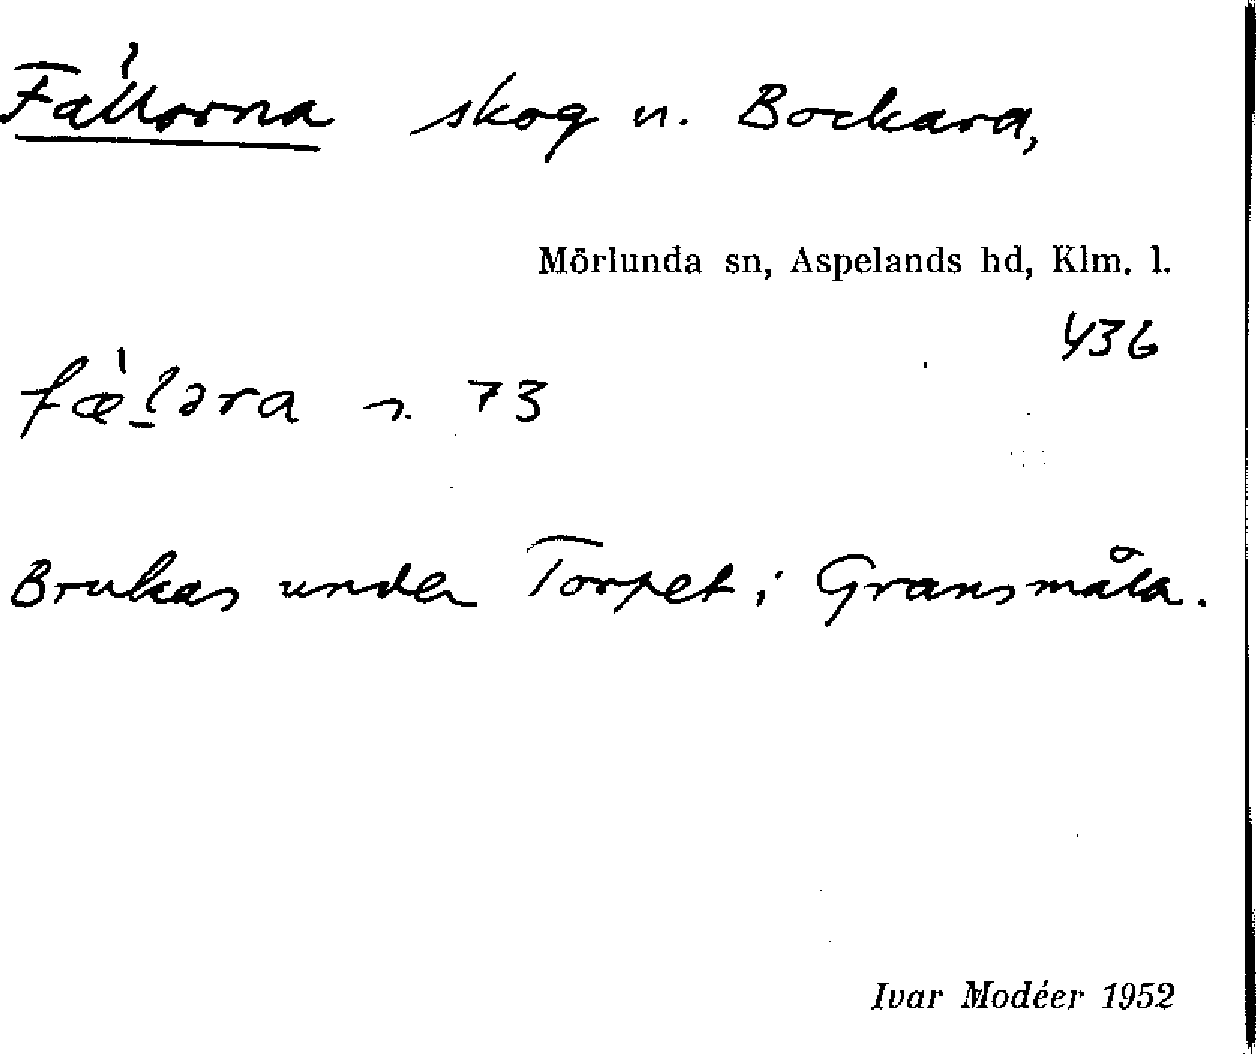 Fällorna skog n. Bockara,
Mörlunda sn, Aspelands hd, Klm. l.
436
fæ̀l̠əra n. 73
Brukas under Torpet i Gransmåla.
Ivar Modéer 1952